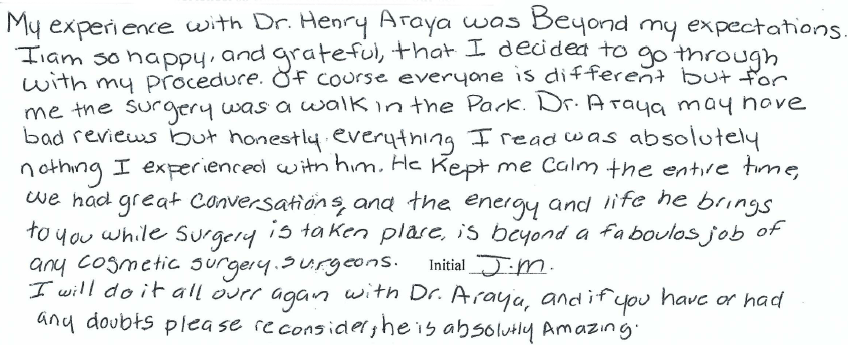 My experience with Dr. Henry Araya was Beyond my expectations.
I iam so happy, and grateful, that I decided to go through
with my procedure. Of course everyone is different but for
me the surgery was a walk in the Park. Dr. Araya may have
bad reviews but honestly everything I read was absolutely
nothing I experienced with him. He kept me Calm the entire time,
we had great conversations, and the energy and life he brings
to you while surgery is taken place, is beyond a faboulos job of
any cosmetic surgery. surgeons. Initial J.M.
I will do it all ourr again with Dr. Araya, and if you have or had
any doubts please reconsider, he is absolutly Amazing.